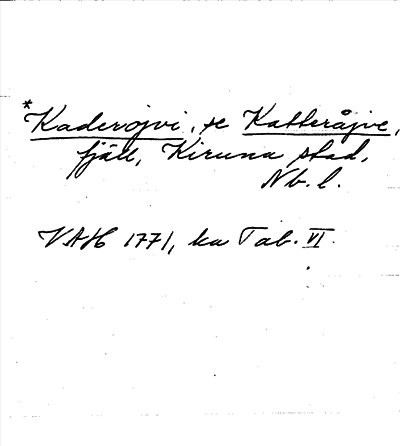 *Kaderojvi, se Katteråjve,
fjäll, Kiruna stad,
Nb. l.
VAH 1771, ka Tab. VI.